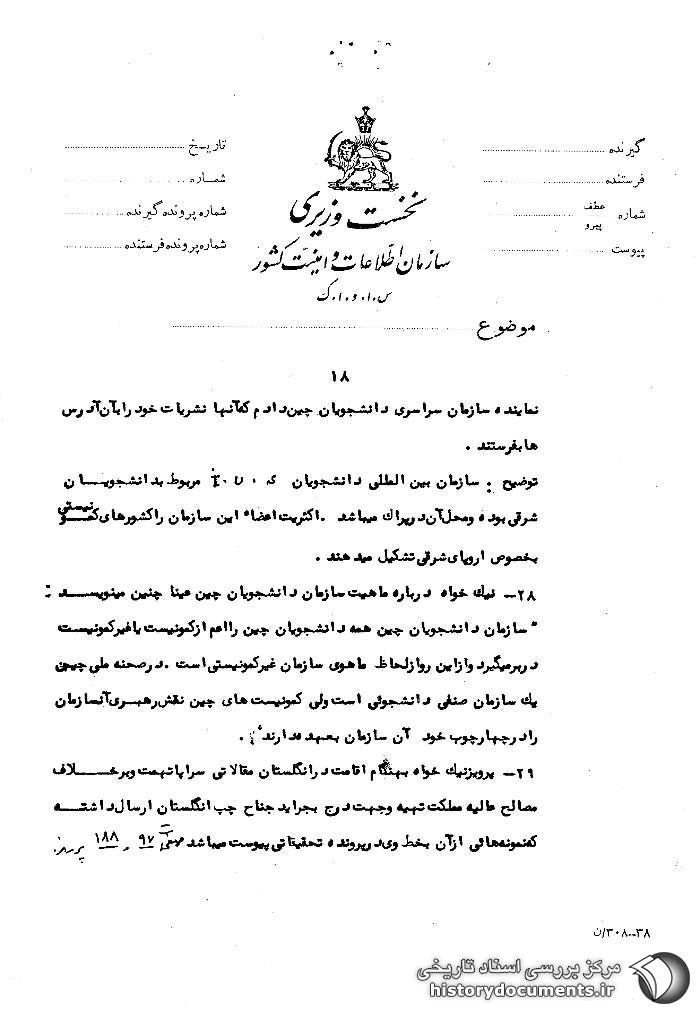 گیرنده
فرستنده
شماره عطف
پیرو
پیوست
تاریخ
شماره
شماره پرونده گیرنده
شماره پرونده فرستنده
نخست وزیری
سازمان اطلاعات و امنیت کشور
س.ا.و.ا.ک
موضوع
۱۸
نماینده سازمان سراسری دانشجویان چین دادم که آنها نشریات خود را بآن آدرس
ها بفرستند .
توضیح : سازمان بین المللی دانشجویان مربوط بدانشجویان
شرقی بوده و محل آن در پراك میباشد . اکثریت اعضاء این سازمان را کشورهای کمونیستی
بخصوص اروپای شرقی تشکیل میدهند .
۲۸- نیك خواه درباره ماهیت سازمان دانشجویان چین عینا چنین مینویسد :
" سازمان دانشجویان چین همه دانشجویان چین را اعم از کمونیست یا غیر کمونیست
در بر میگیرد و از این رو از لحاظ ماهوی سازمان غیر کمونیستی است . در صحنه ملی چین
یك سازمان صنفی دانشجوئی است ولی کمونیست های چین نقش رهبری آن سازمان
را در چهارچوب خود آن سازمان بعهده دارند " .
۲۹- پرویز نیك خواه بهنگام اقامت در انگلستان مقالاتی سراپا تهمت و بر خلاف
مصالح عالیه مملکت تهیه و جهت درج بجراید جناح چپ انگلستان ارسال داشته
که نمونه هائی از آن بخط وی در پرونده تحقیقاتی پیوست میباشد ۹۷ و ۱۸۸
۳۰۸-۰۳۸/ن
مرکز بررسی اسناد تاریخی
historydocuments.ir